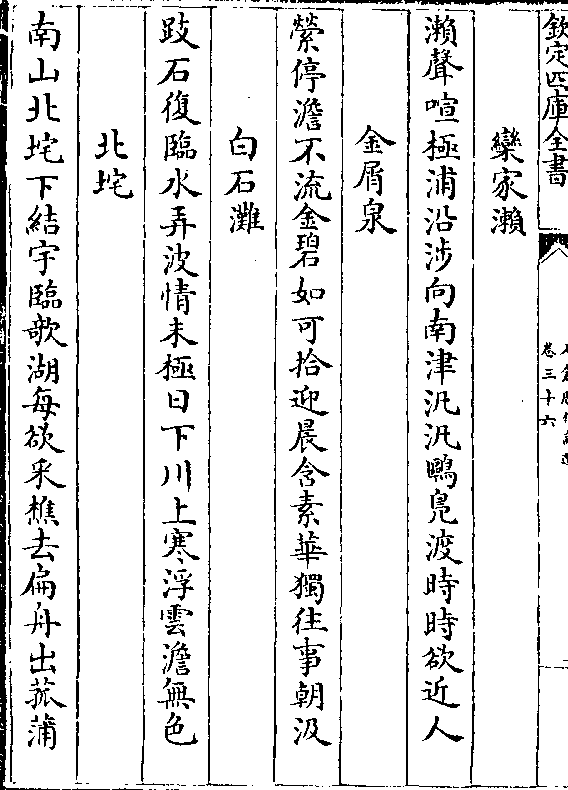 欽定四庫全書
卷三十六
欒家瀨
瀨聲喧極浦沿涉向南津汎汎鷗鳧渡時時欲近人
金屑泉
縈停澹不流金碧如可拾迎晨含素華獨往事朝汲
白石灘
跂石復臨水弄波情未極日下川上寒浮雲澹無色
北垞
南山北垞下結宇臨欹湖每欲采樵去扁舟出菰蒲